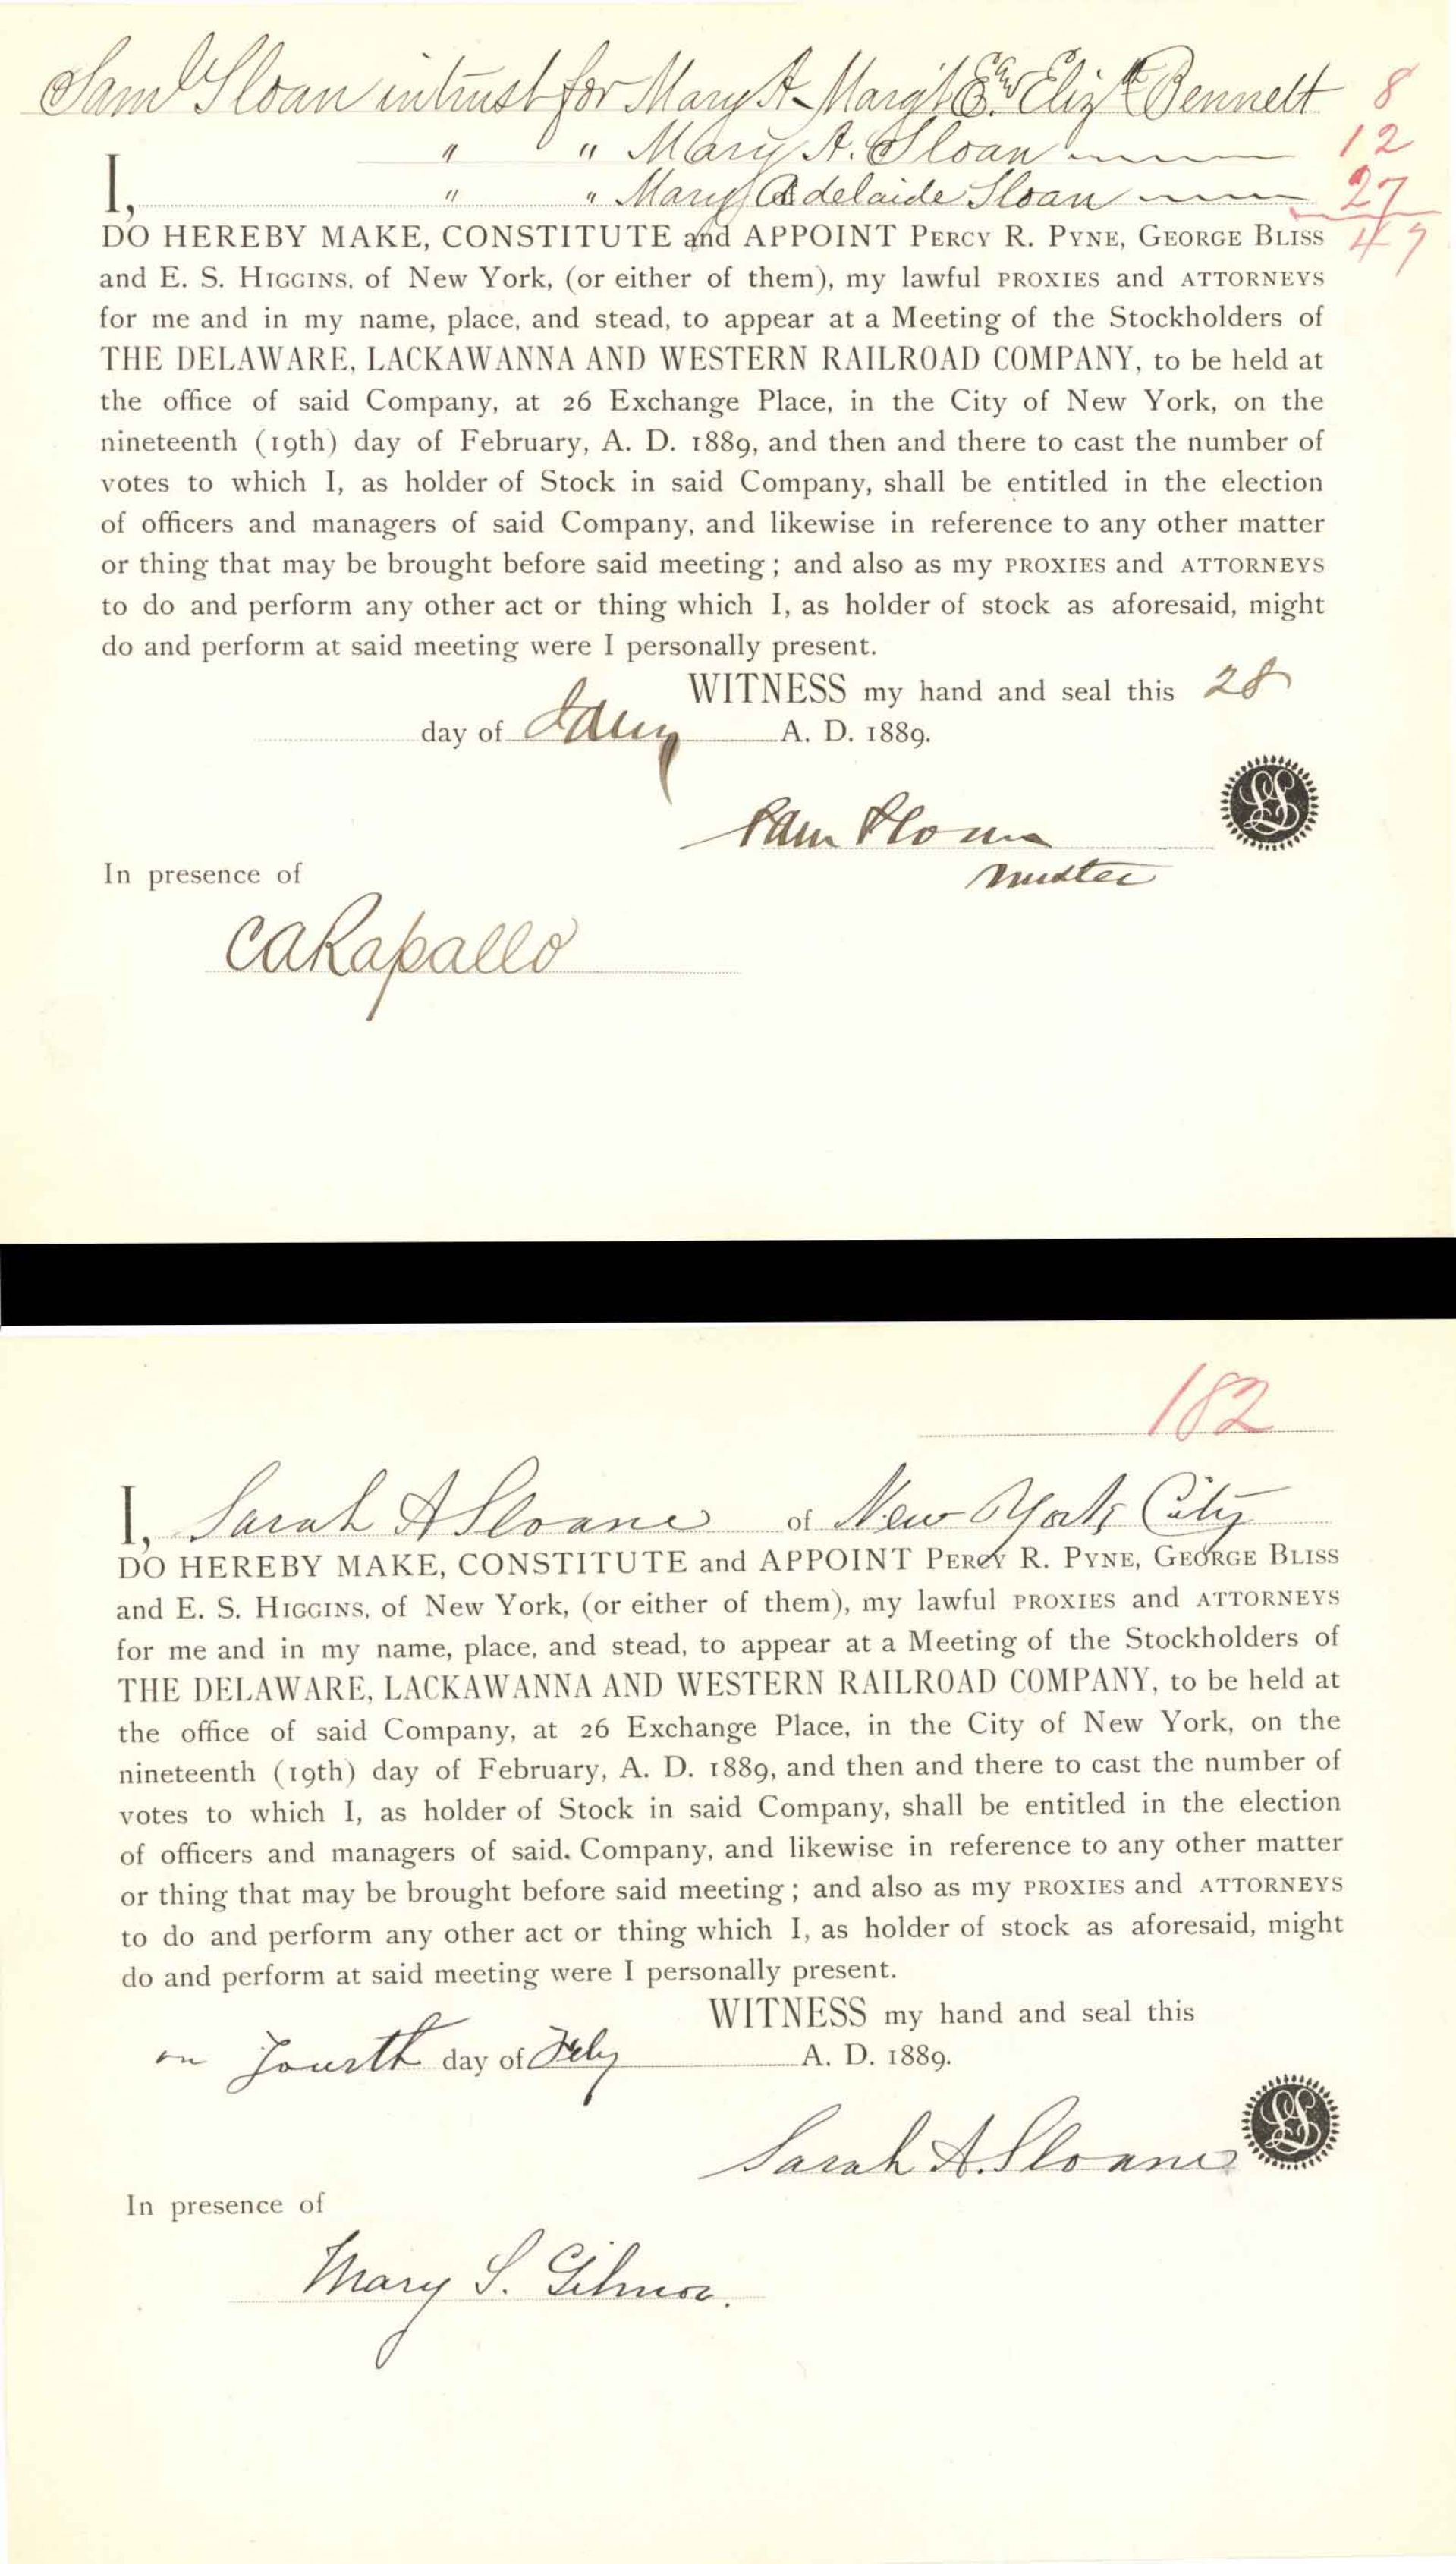 Saml Sloan in trust for Mary A- Margt E. & Elizth Bennett 8
" " Mary A. Sloan 12
I, " " Mary Adelaide Sloan 27
DO HEREBY MAKE, CONSTITUTE and APPOINT PERCY R. PYNE, GEORGE BLISS 47
and E. S. HIGGINS, of New York, (or either of them), my lawful PROXIES and ATTORNEYS
for me and in my name, place, and stead, to appear at a Meeting of the Stockholders of
THE DELAWARE, LACKAWANNA AND WESTERN RAILROAD COMPANY, to be held at
the office of said Company, at 26 Exchange Place, in the City of New York, on the
nineteenth (19th) day of February, A. D. 1889, and then and there to cast the number of
votes to which I, as holder of Stock in said Company, shall be entitled in the election
of officers and managers of said Company, and likewise in reference to any other matter
or thing that may be brought before said meeting; and also as my PROXIES and ATTORNEYS
to do and perform any other act or thing which I, as holder of stock as aforesaid, might
do and perform at said meeting were I personally present.
WITNESS my hand and seal this 28
day of Jany A. D. 1889.
Sam Sloan
LS
trustee
In presence of
CARapallo
182
I, Sarah A Sloane of New York City
DO HEREBY MAKE, CONSTITUTE and APPOINT PERCY R. PYNE, GEORGE BLISS
and E. S. HIGGINS, of New York, (or either of them), my lawful PROXIES and ATTORNEYS
for me and in my name, place, and stead, to appear at a Meeting of the Stockholders of
THE DELAWARE, LACKAWANNA AND WESTERN RAILROAD COMPANY, to be held at
the office of said Company, at 26 Exchange Place, in the City of New York, on the
nineteenth (19th) day of February, A. D. 1889, and then and there to cast the number of
votes to which I, as holder of Stock in said Company, shall be entitled in the election
of officers and managers of said. Company, and likewise in reference to any other matter
or thing that may be brought before said meeting; and also as my PROXIES and ATTORNEYS
to do and perform any other act or thing which I, as holder of stock as aforesaid, might
do and perform at said meeting were I personally present.
WITNESS my hand and seal this
on Fourth day of Feby A. D. 1889.
Sarah A. Sloane
LS
In presence of
Mary S. Gilmor.